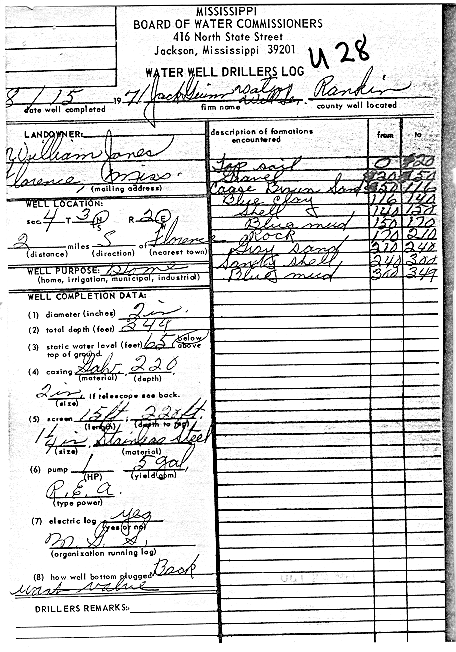 MISSISSIPPI
BOARD OF WATER COMMISSIONERS
416 North State Street
Jackson, Mississippi 39201
U 28
WATER WELL DRILLERS LOG
8/15 1971 Jack Guinn Water Well Ser. Rankin
date well completed firm name county well located
LANDOWNER:
William Jones
Florence, Miss.
(mailing address)
WELL LOCATION:
sec 4 T 3 N R 2 E
2 miles S of Florence
(distance) (direction) (nearest town)
WELL PURPOSE: Home
(home, irrigation, municipal, industrial)
WELL COMPLETION DATA:
(1) diameter (inches) 2 in.
(2) total depth (feet) 344
(3) static water level (feet) 65 below above
top of ground.
(4) casing Galv. 220
(material) (depth)
2 in. if telescope see back.
(size)
(5) screen 15 ft.
(length) (depth to top)
in. Stainless Steel
(size) (material)
(6) pump 1 5 gal
(HP) (yield gpm)
R.E.A.
(type power)
(7) electric log yes
(yes or no)
M.G.S.
(organization running log)
(8) how well bottom plugged Back
wash valve
DRILLERS REMARKS:
description of formations encountered from to
Top soil 0 20
Gravel 20 50
Coarse Brown Sand 50 116
Blue Clay 116 140
Shell 140 150
Blue mud 150 170
Rock 170 210
Gray sand 210 240
Sandy shell 240 300
Blue mud 300 349